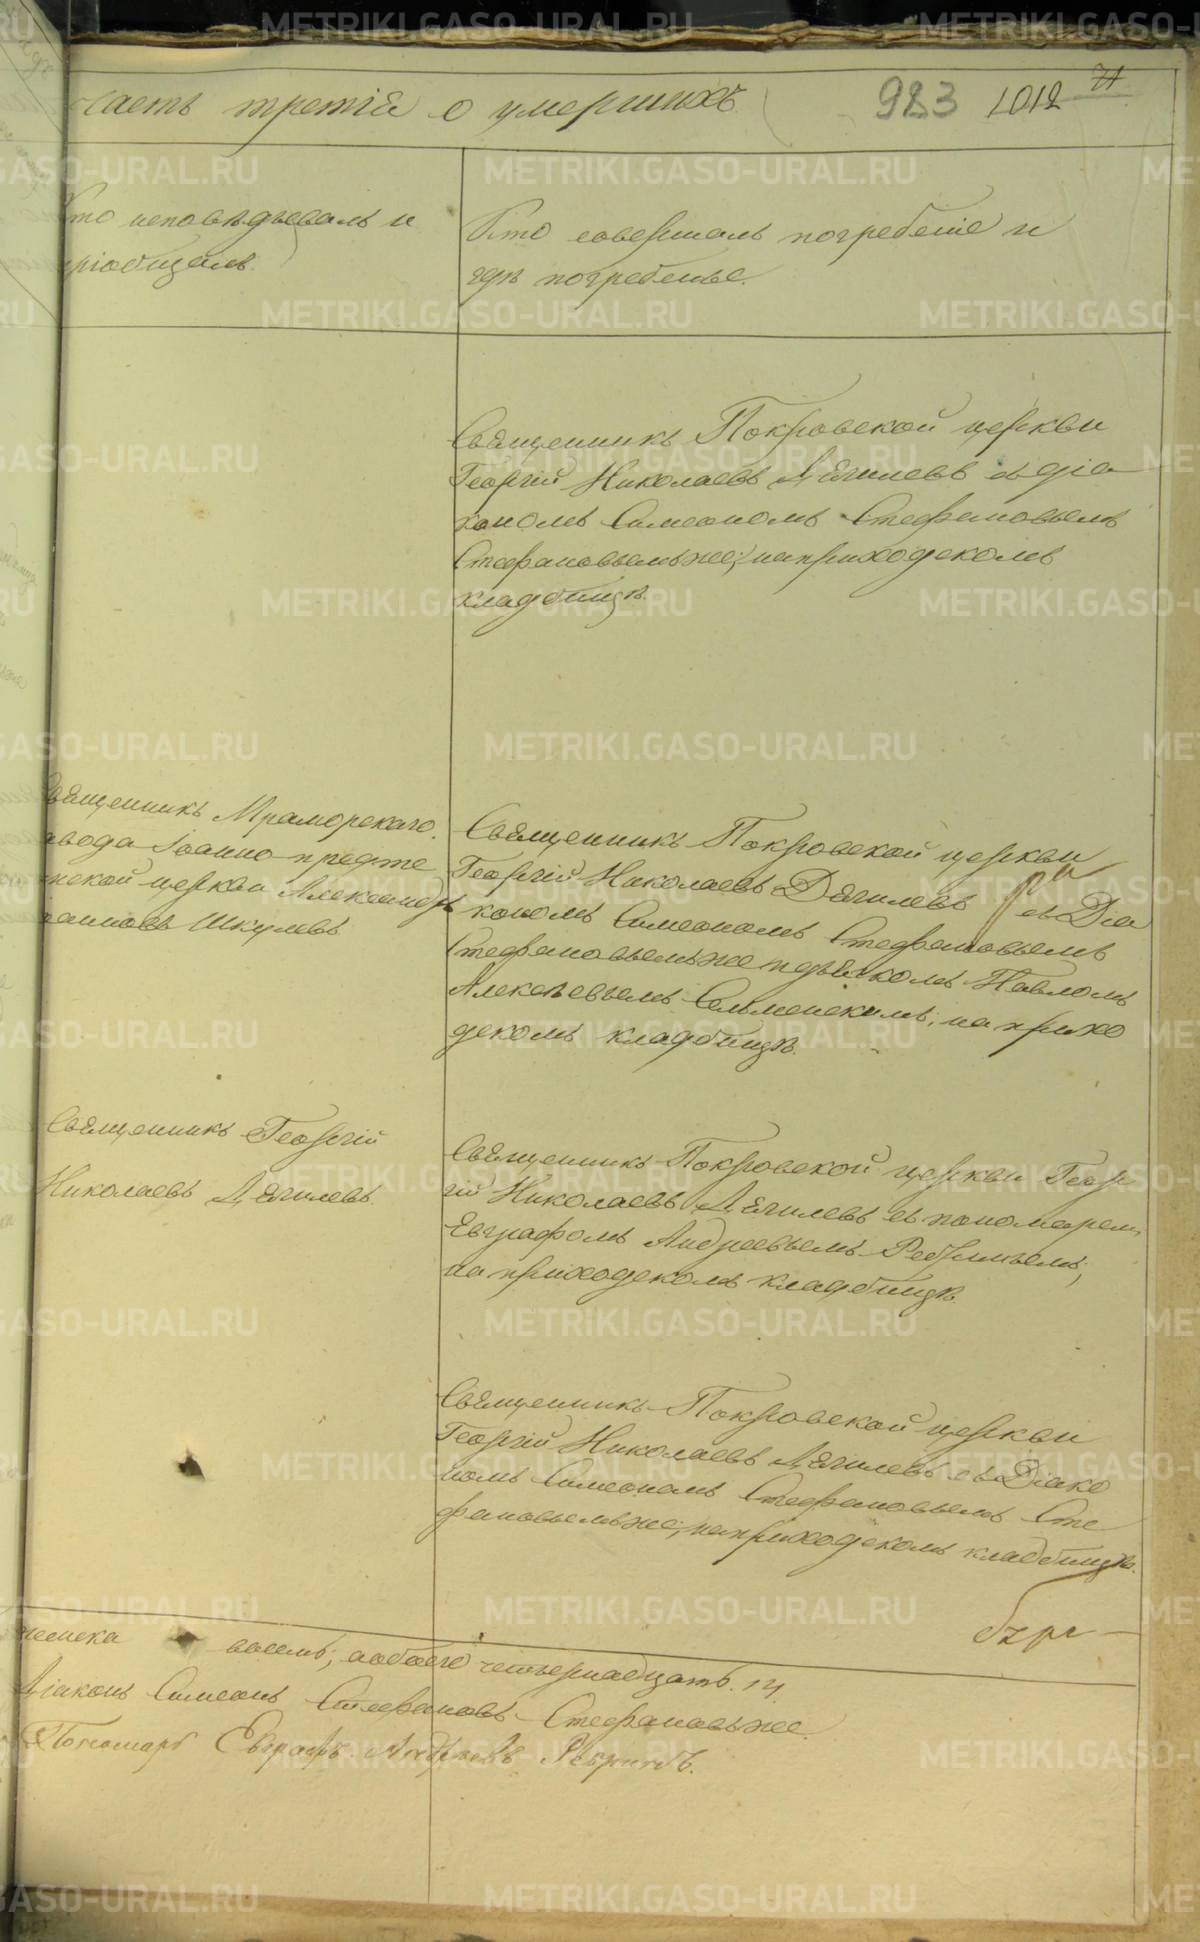 часть третія о умершихъ
983 1012 71
Кто исповѣдывалъ и
пріобщалъ.
Кто совершалъ погребеніе и
гдѣ погребены.
Священникъ Покровской церкви
Георгій Николаевъ Дягилевъ съ діа
кономъ Симеономъ Стефановымъ
Стефановымъ же; на приходскомъ
кладбищѣ.
Священникъ Мраморскаго
завода Іоанно-предте
ченской церкви Александръ
Шкулевъ
Священникъ Покровской церкви
Георгій Николаевъ Дягилевъ съ Діа
кономъ Симеономъ Стефановымъ
Стефановымъ же и дьячкомъ Павломъ
Алексѣевымъ Сельменскимъ; на прихо
дскомъ кладбищѣ.
Священникъ Георгій
Николаевъ Дягилевъ.
Священникъ Покровской церкви Геор
гій Николаевъ Дягилевъ съ пономаремъ
Евграфомъ Андреевымъ Ребринымъ;
на приходскомъ кладбищѣ.
Священникъ Покровской церкви
Георгій Николаевъ Дягилевъ съ Діако
номъ Симеономъ Стефановымъ Сте
фановымъ же; на приходскомъ кладбищѣ.
женска восемь; а обоего четырнадцать. 14.
Діаконъ Симеонъ Стефановъ Стефановъ же
Пономарь Евграфъ Андреевъ Ребринъ.
METRIKI.GASO-URAL.RU